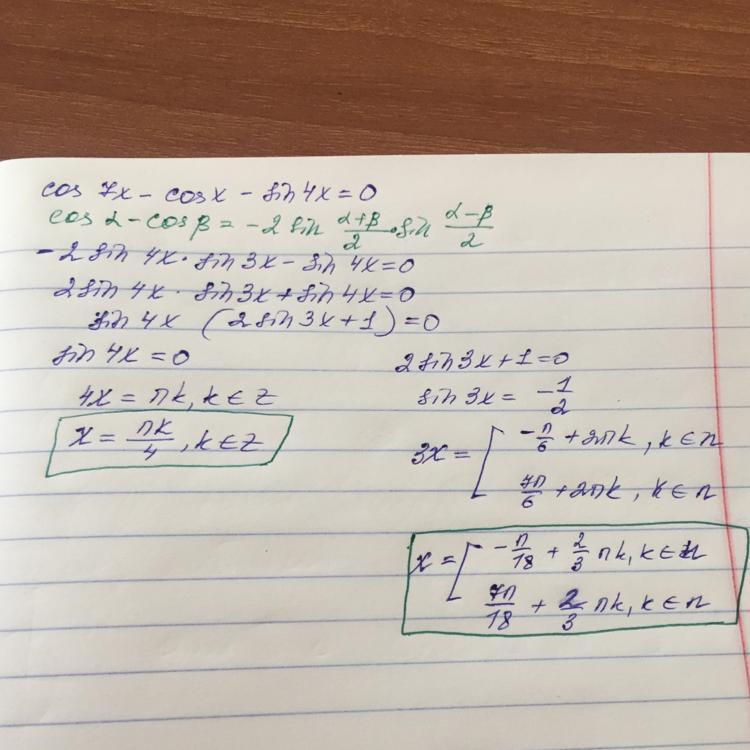 cos 7x - cosx - sin4x = 0
cos α - cosβ = -2 sin (α+β)/2 · sin (α-β)/2
-2 sin 4x · sin 3x - sin 4x = 0
2sin 4x · sin3x + sin4x = 0
sin 4x (2sin3x+1) = 0
sin 4x = 0
4x = πk, k ∈ z
x = πk/4, k ∈ z
2sin3x+1=0
sin 3x = -1/2
3x = [ -π/6 + 2πk, k ∈ n
7π/6 + 2πk, k ∈ n
x = [ -π/18 + 2/3 πk, k ∈ n
7π/18 + 2/3 πk, k ∈ n